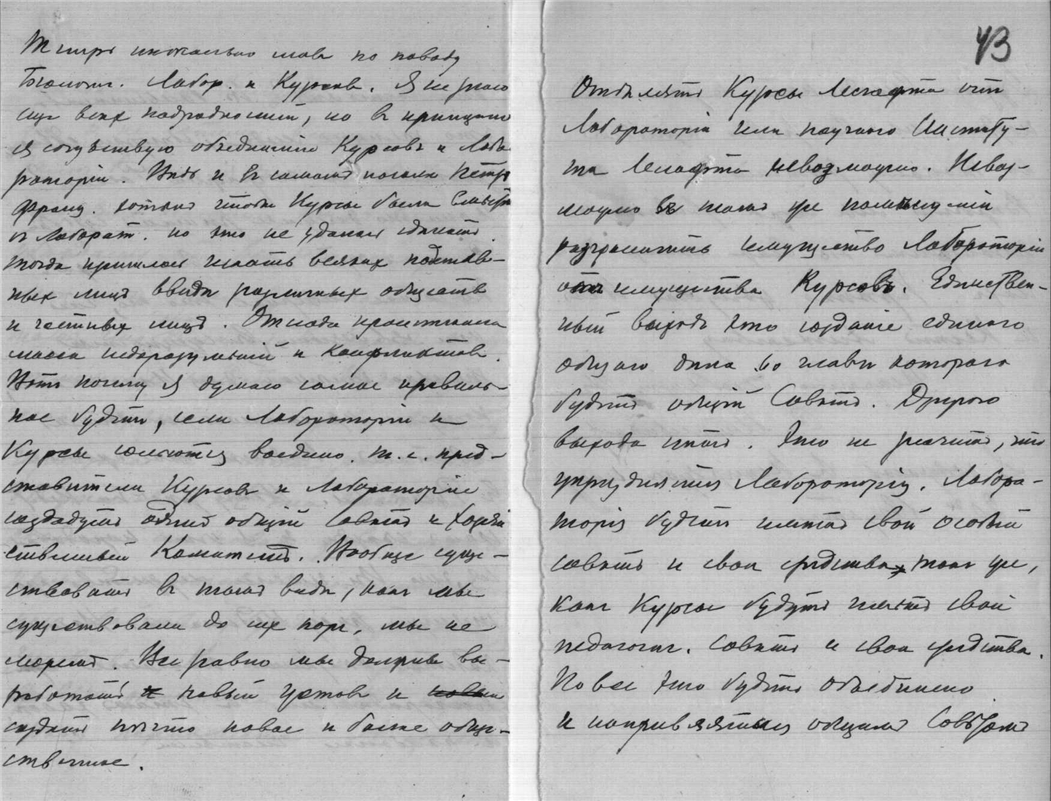 Теперь несколько слов по поводу
Биологич. Лабор. и Курсов. Я не знаю
еще всех подробностей, но в принципе
я сочувствую объединению Курсовъ и Лабо-
раторіи. Ведь и в самомъ начале Петръ
Франц. хотелъ чтобы Курсы были вместе
съ Лаборат. но это не удалось сделать.
Тогда пришлось искать всяких подстав-
ных лицъ ввиде различных обществ
и частных лицъ. Отсюда проистекала
масса недоразумений и конфликтов.
Вотъ почему я думаю самое правиль-
ное будетъ, если Лаборатория и
Курсы сольются воедино. т.е. пред-
ставители Курсовъ и Лаборатории
создадутъ одинъ общій Советъ и Хозяй
ственный Комитетъ. Вообще суще-
ствовать в томъ виде, какъ мы
существовали до сих пор, мы не
можемъ. Все равно мы должны вы-
работать новый уставъ и
создать нечто новое и более обще-
ственное.
43
Отделять Курсы Лесгафта отъ
Лабораторіи или научного Институ-
та Лесгафта невозможно. Невоз-
можно въ томъ же помещеніи
разграничить имущество Лабораторіи
отъ имущества Курсовъ. Единствен-
ный выходъ это созданіе единого
общаго дела во главе которого
будетъ общій Советъ. Другого
выхода нетъ. Это не значитъ, что
упразднятся Лабораторія. Лабора-
торія будетъ иметь свой особый
советъ и свои средства, такъ же,
какъ Курсы будутъ иметь свой
педагогич. советъ и свои средства.
Но все это будетъ объединено
и направляться общимъ Советомъ